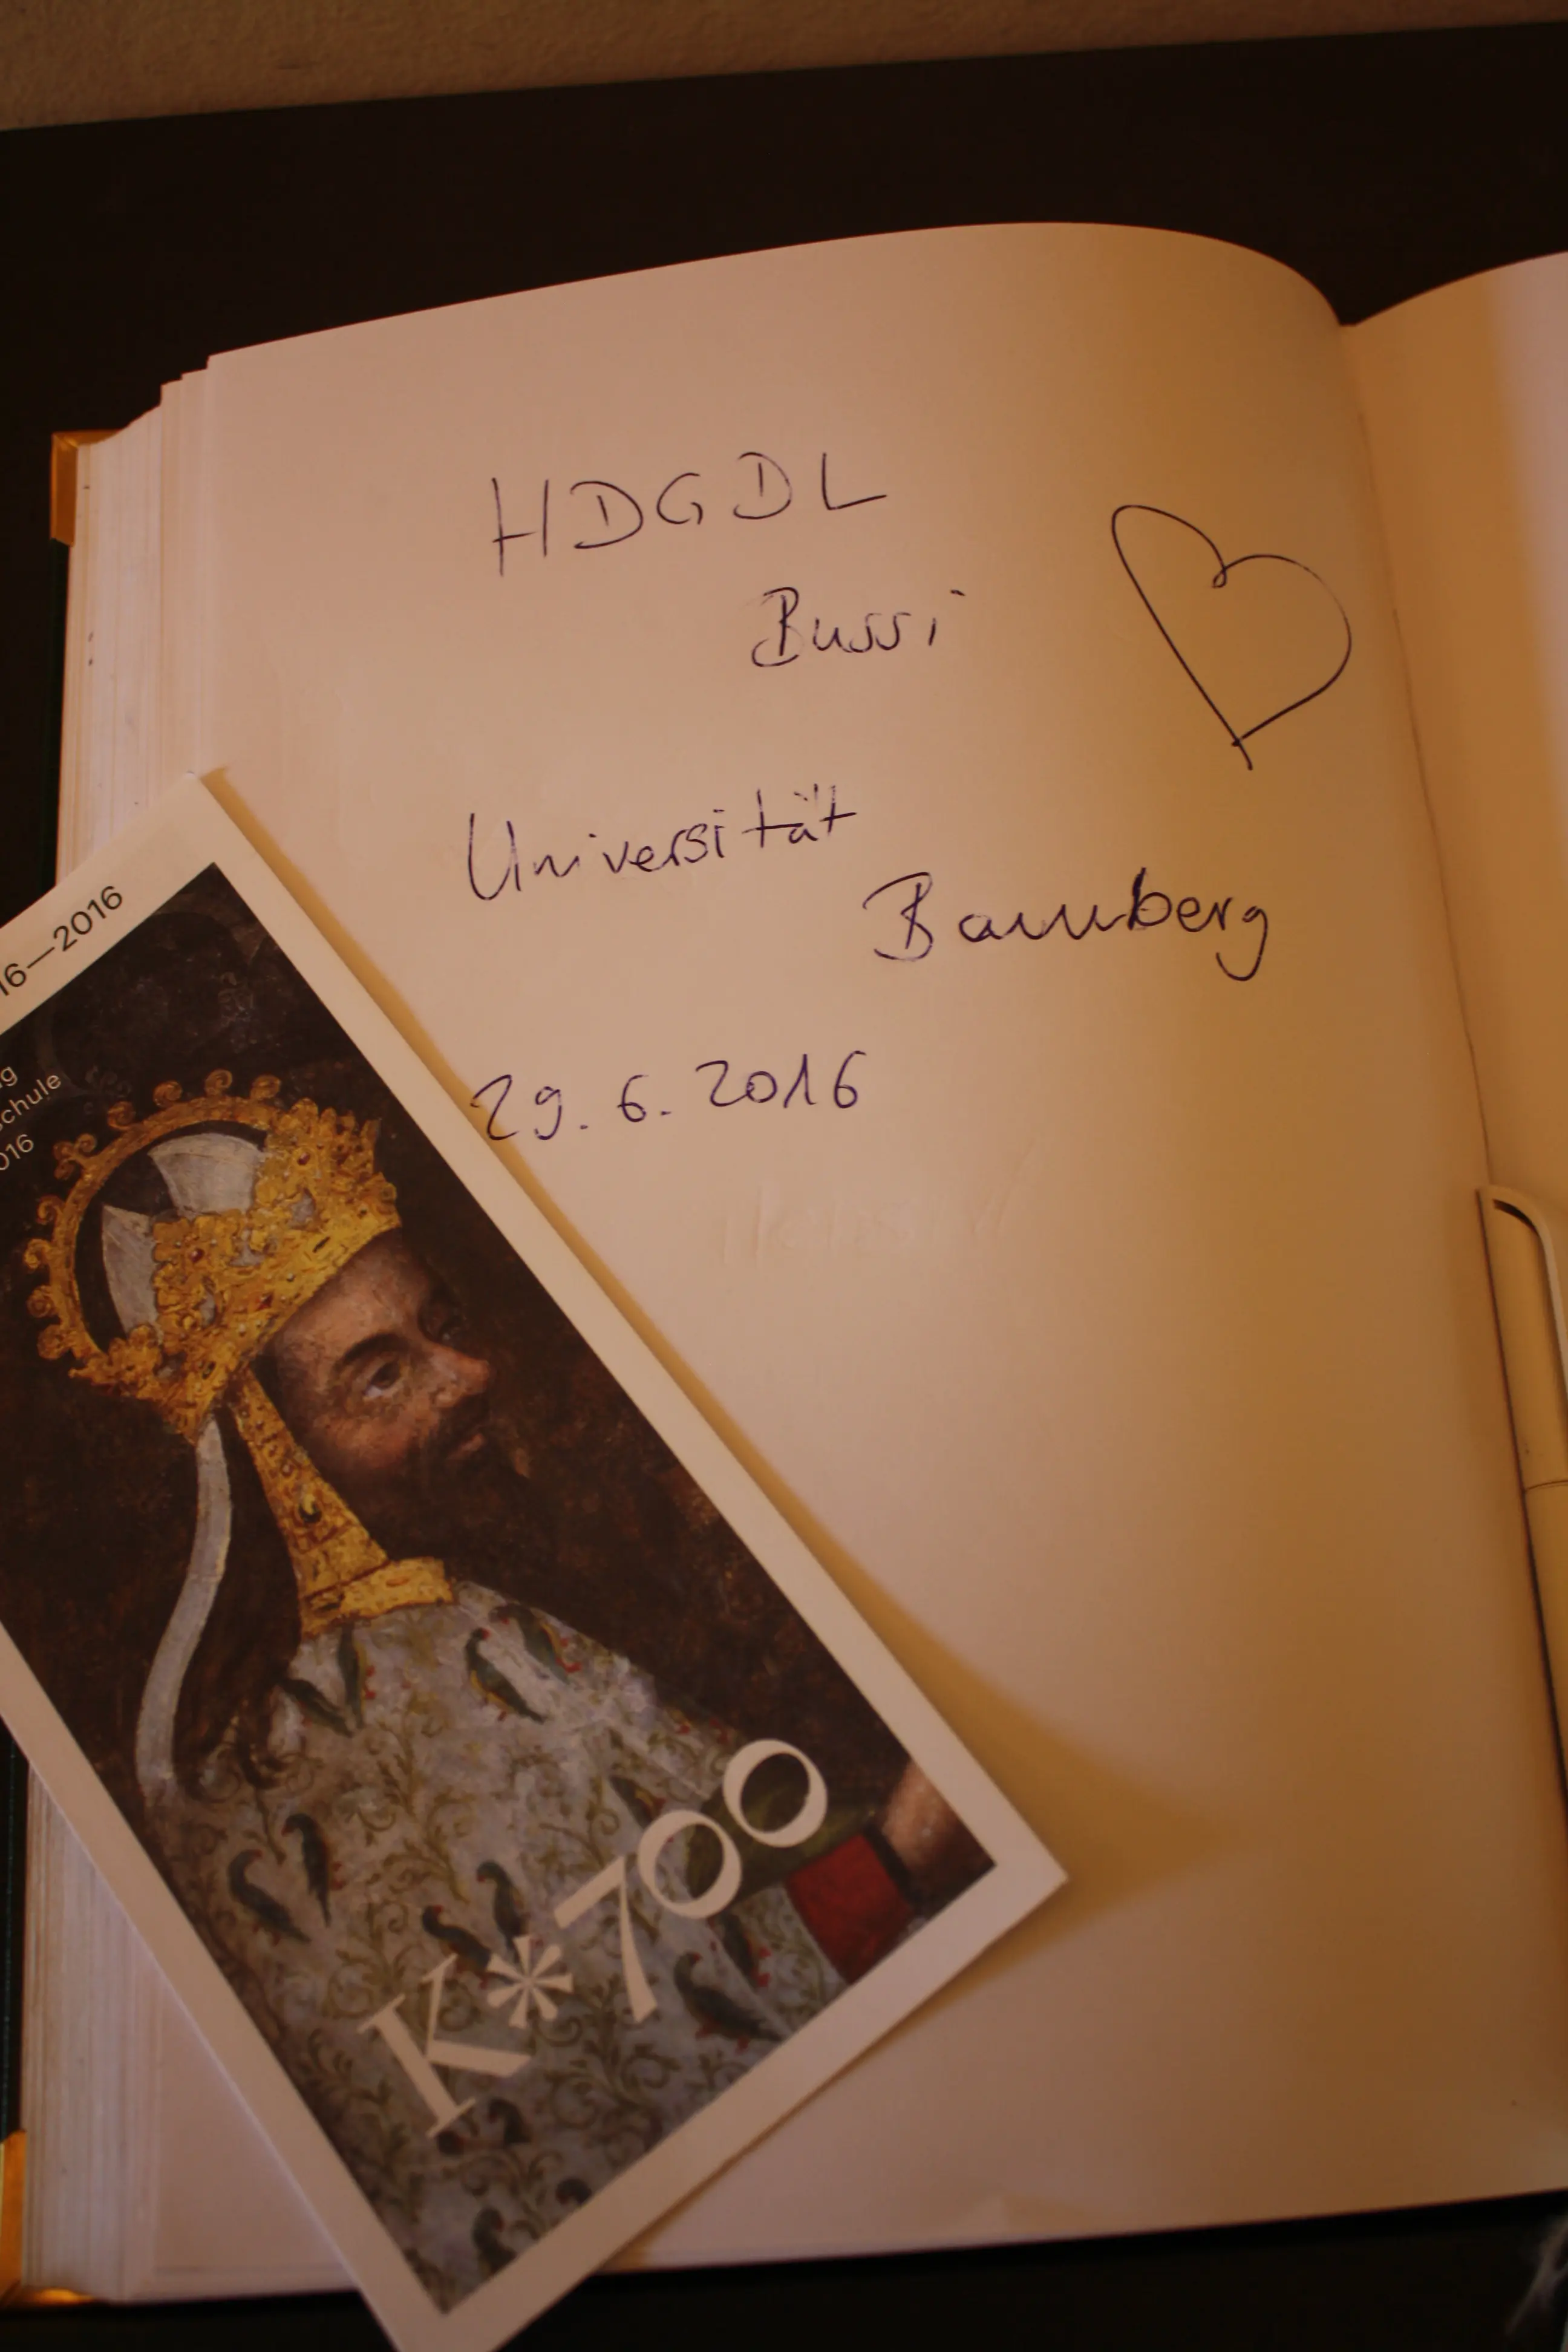 HDGDL
Bussi
Universität
Bamberg
29.6.2016
16—2016
g
schule
016
K*700